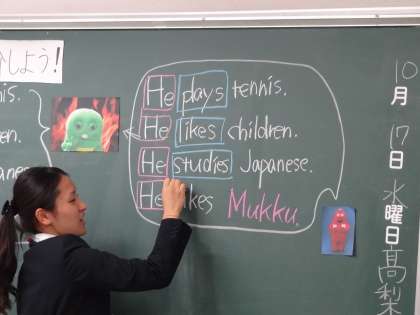 しよう!
is.
ren.
anese.
He plays tennis.
He likes children.
He studies Japanese.
He likes Mukku.
10月17日水曜日高梨